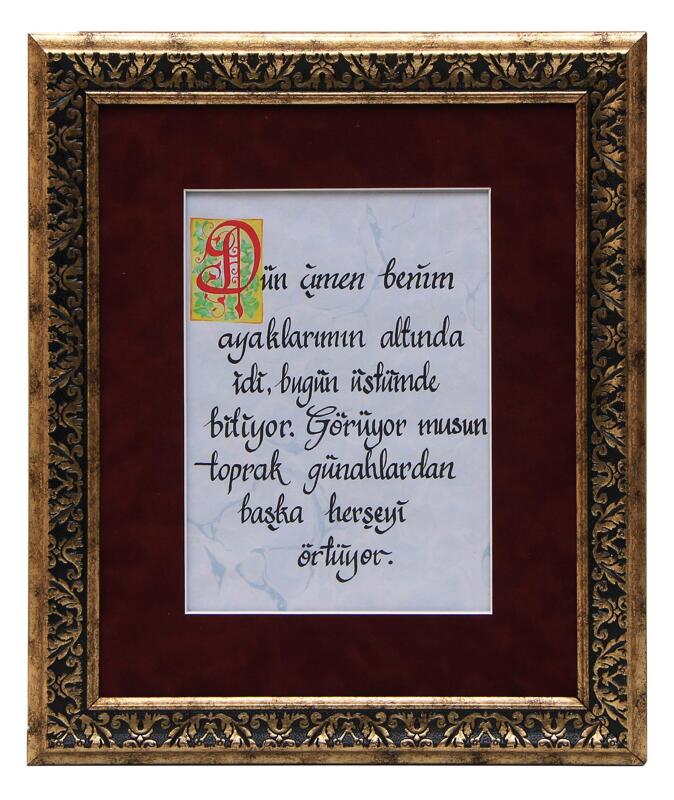 Dün çimen benim
ayaklarımın altında
idi, bugün üstümde
bitiyor. Görüyor musun
toprak günahlardan
başka herşeyi
örtüyor.